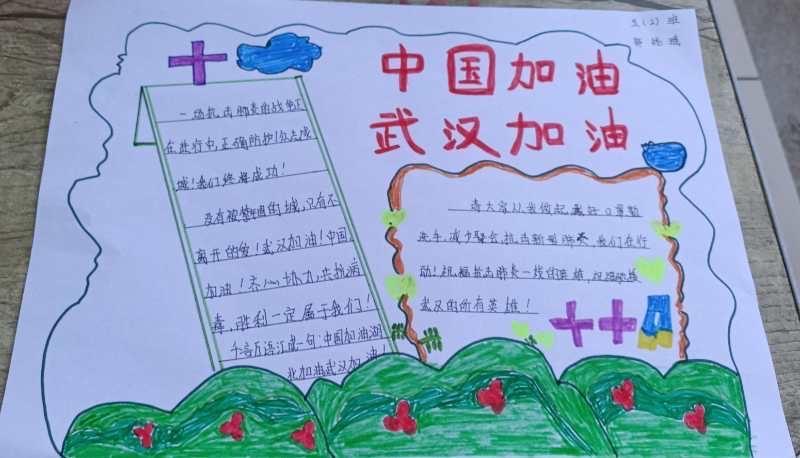 五（2）班
中国加油
武汉加油
一场抗击肺炎的战争正
在进行中，正确防护！众志成
城！我们终将成功！
没有被禁锢的城，只有不
离开的爱！武汉加油！中国
加油！齐心协力，共抗病
毒，胜利一定属于我们！
千言万语汇成一句：中国加油湖
北加油武汉加油！
请大家从我做起，戴好口罩勤
洗手，减少聚会，抗击新型肺炎，我们在行
动！祝福抗击肺炎一线的英雄，
武汉的所有英雄！